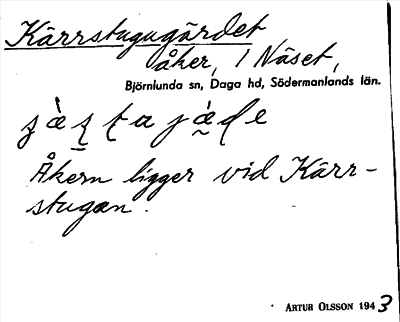 Kärrstugugärdet
åker, 1 Näset,
Björnlunda sn, Daga hd, Södermanlands län.
Åkern ligger vid Kärr-
stugan.
ARTUR OLSSON 1943